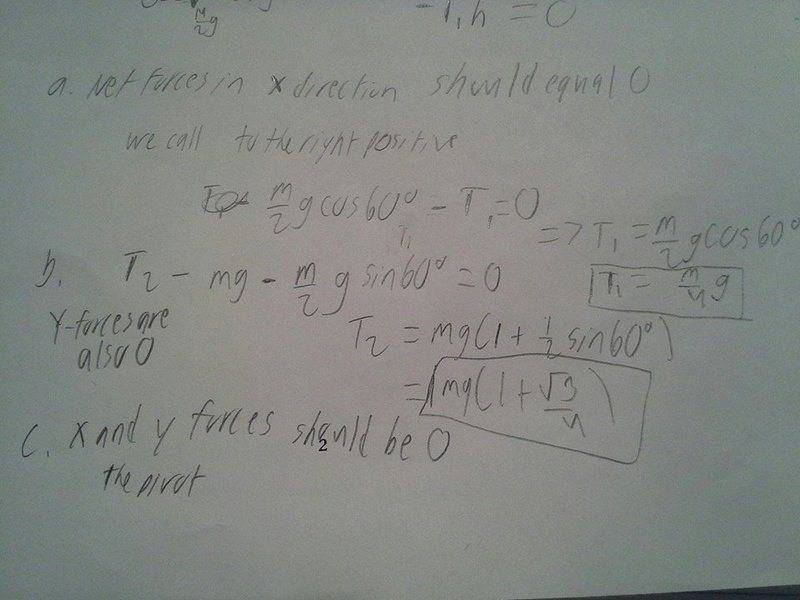 m/2 g
- T₁h = 0
a. Net forces in x direction should equal 0
we call to the right positive
m/2 g cos60° - T₁ = 0
T₁
=> T₁ = m/2 g cos 60°
T₁ = m/4 g
b. T₂ - mg - m/2 g sin60° = 0
Y-forces are
also 0
T₂ = mg(1 + 1/2 sin60°)
= mg(1 + √3/4)
c. x and y forces should be 0
2
the pivot